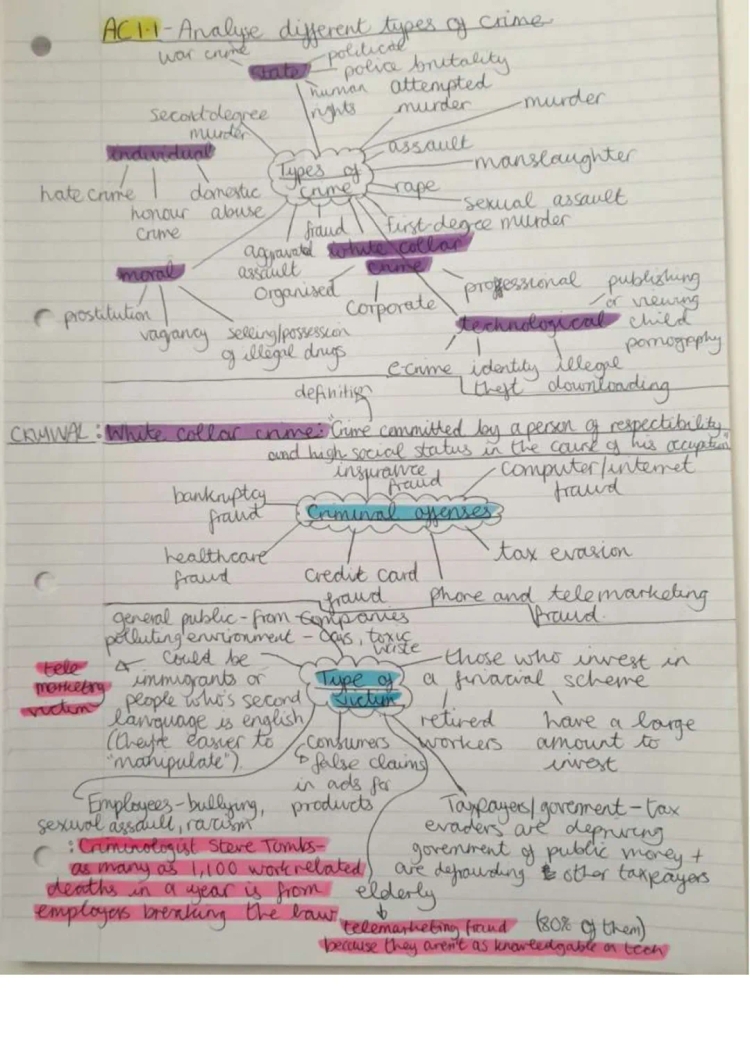 AC1.1 - Analyse different types of crime
war crime
political
state
police brutality
human rights
attempted murder
murder
second-degree murder
assault
individual
Types of crime
manslaughter
rape
hate crime
honour crime
domestic abuse
sexual assault
fraud
first-degree murder
aggravated assault
white collar crime
moral
Organised
corporate
professional
prostitution
vagancy
selling/possession of illegal drugs
technological
publishing or viewing child pornography
e-crime
identity theft
illegal downloading
definition
CRIMINAL: White collar crime: "Crime committed by a person of respectibility
and high social status in the course of his occuption"
insurance fraud
computer/internet fraud
bankruptcy fraud
Criminal offenses
healthcare fraud
credit card fraud
phone and telemarketing fraud.
tax evasion
general public - from companies
polluting environment - toxic waste
tele marketing victim
could be
immigrants or
people who's second
language is english
(they're easier to
"manipulate").
Type of victim
those who invest in
a finacial scheme
retired workers
have a large
amount to
invest
consumers
false claims
in ads for
products
Employees - bullying,
sexual assault, racism
: Criminologist Steve Tombs -
as many as 1,100 work related
deaths in a year is from
employers breaking the law
Taxpayers/goverment - tax
evaders are depriving
government of public money +
are defrauding other taxpayers
elderly
telemarketing fraud (80% of them)
because they aren't as knowledgable on tech